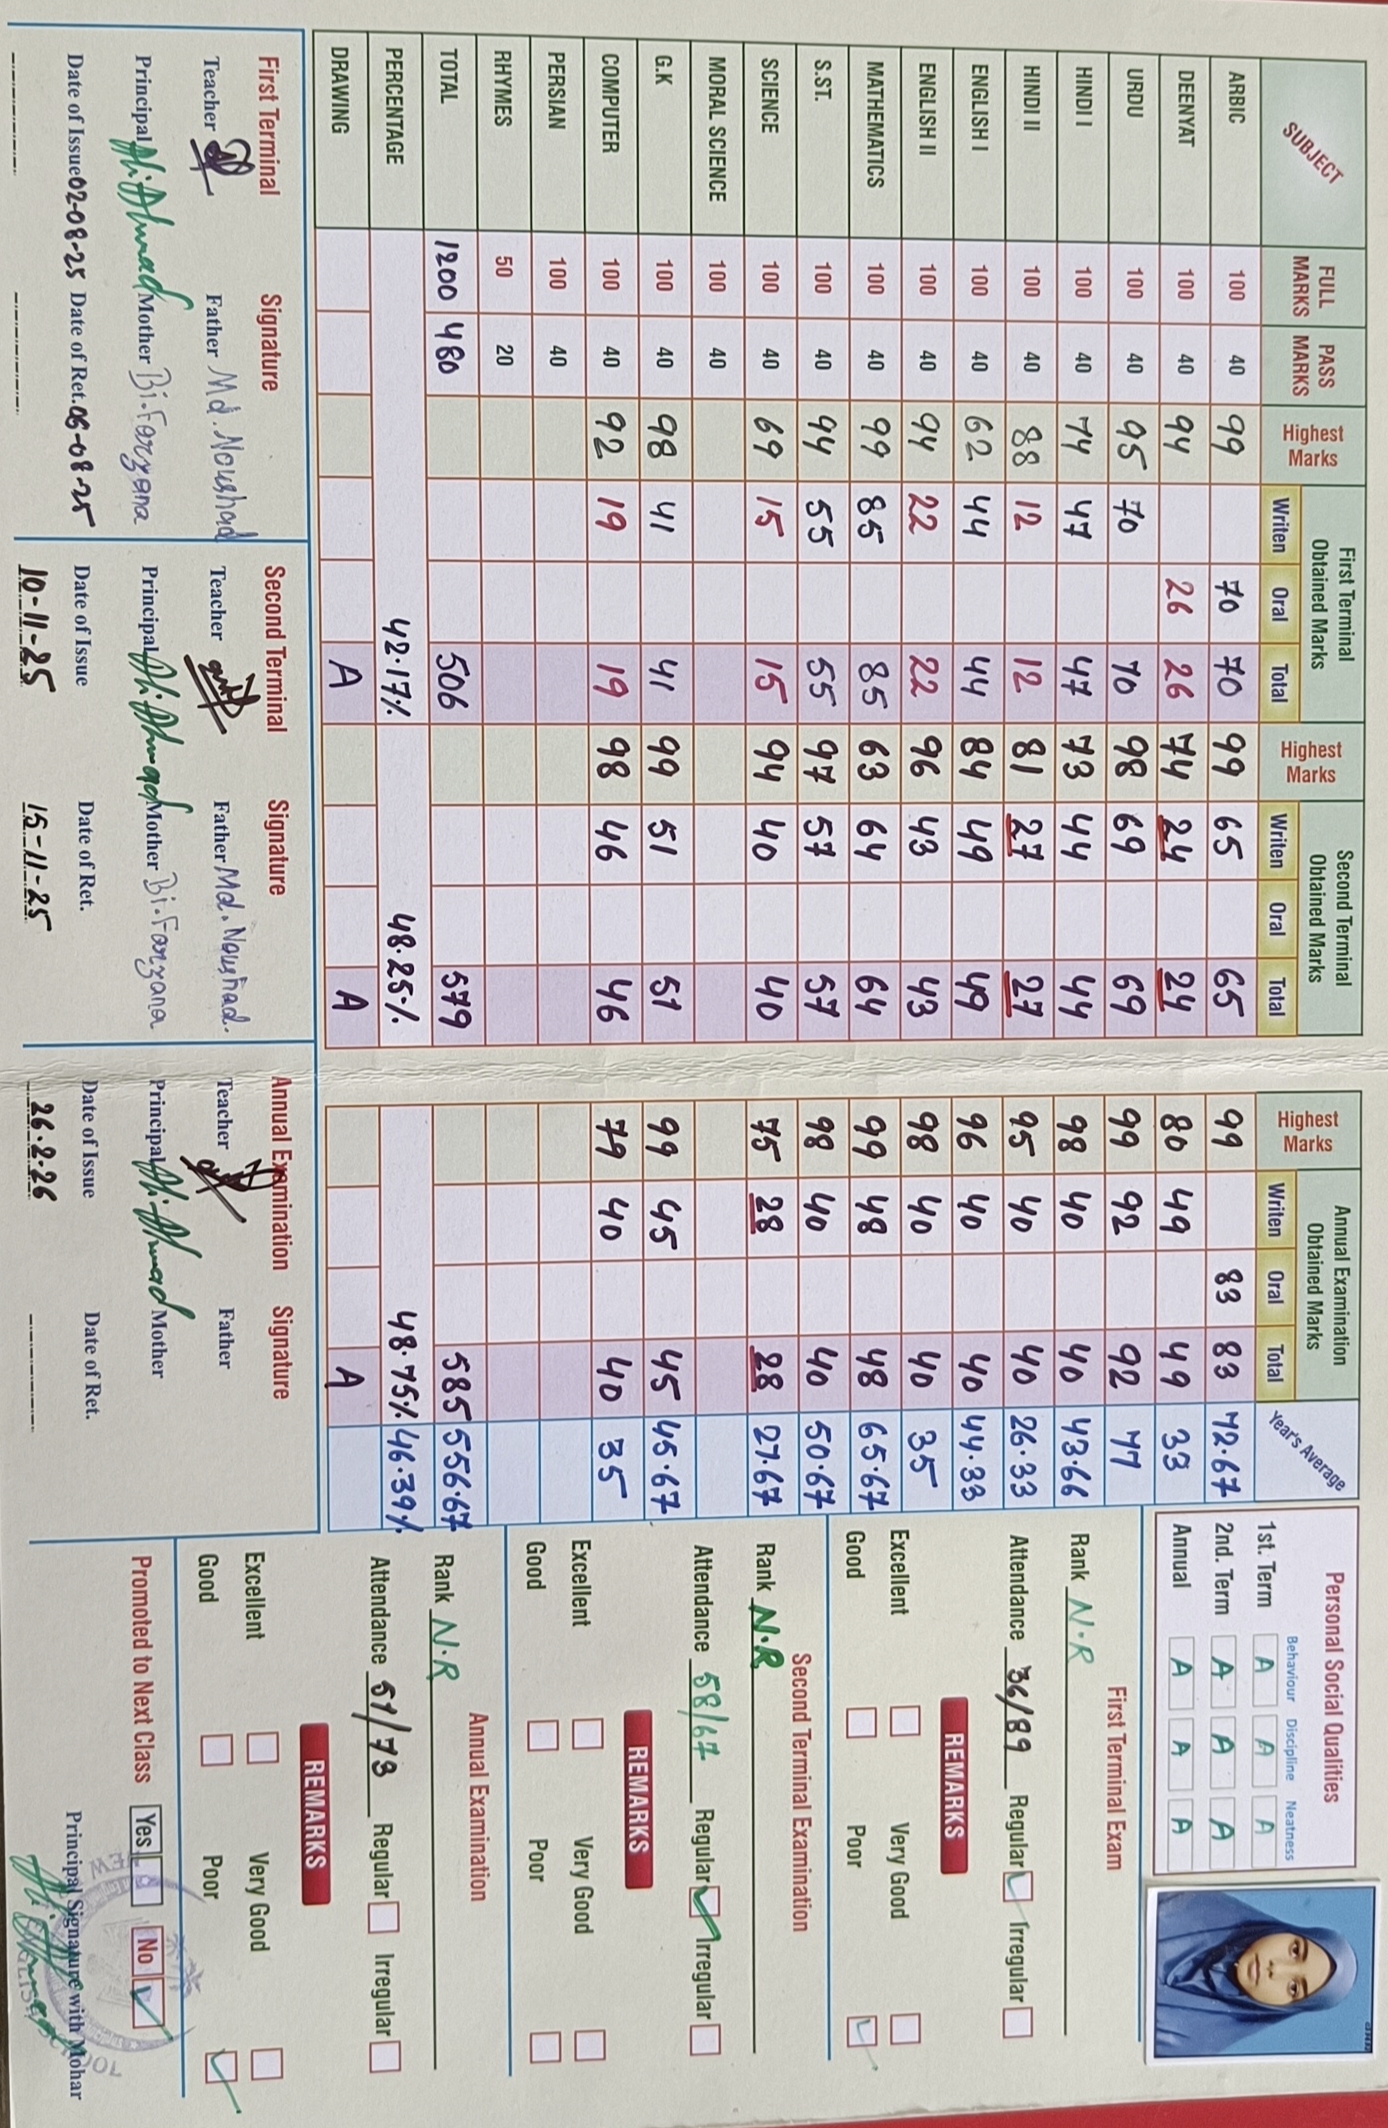 SUBJECT FULL MARKS PASS MARKS Highest Marks First Terminal Obtained Marks Writen Oral Total Highest Marks Second Terminal Obtained Marks Writen Oral Total Highest Marks Annual Examination Obtained Marks Writen Oral Total Year's Average
ARBIC 100 40 99 70 70 99 65 65 99 83 83 72.67
DEENYAT 100 40 94 26 26 74 24 24 80 49 49 33
URDU 100 40 95 70 70 98 69 69 99 92 92 77
HINDI I 100 40 74 47 47 73 44 44 98 40 40 43.66
HINDI II 100 40 88 12 12 81 27 27 95 40 40 26.33
ENGLISH I 100 40 62 44 44 84 49 49 96 40 40 44.33
ENGLISH II 100 40 94 22 22 96 43 43 98 40 40 35
MATHEMATICS 100 40 99 85 85 63 64 64 99 48 48 65.67
S.ST. 100 40 94 55 55 97 57 57 98 40 40 50.67
SCIENCE 100 40 69 15 15 94 40 40 75 28 28 27.67
MORAL SCIENCE 100 40
G.K 100 40 98 41 41 99 51 51 99 45 45 45.67
COMPUTER 100 40 92 19 19 98 46 46 79 40 40 35
PERSIAN 100 40
RHYMES 50 20
TOTAL 1200 480 506 579 585 556.67
PERCENTAGE 42.17% 48.25% 48.75% 46.39%
DRAWING A A A
First Terminal Signature
Teacher Father Md. Noushad
Principal Ali Ahmad Mother Bi. Farzana
Date of Issue 02-08-25 Date of Ret. 06-08-25
Second Terminal Signature
Teacher Father Md. Noushad.
Principal Ali Ahmad Mother Bi. Farzana
Date of Issue Date of Ret.
10-11-25 15-11-25
Annual Examination Signature
Teacher Father
Principal Ali Ahmad Mother
Date of Issue Date of Ret.
26.2.26
Personal Social Qualities
Behaviour Discipline Neatness
1st. Term A A A
2nd. Term A A A
Annual A A A
First Terminal Exam
Rank N.R
Attendance 36/89 Regular Irregular
REMARKS
Excellent Very Good
Good Poor
Second Terminal Examination
Rank N.R
Attendance 58/67 Regular Irregular
REMARKS
Excellent Very Good
Good Poor
Annual Examination
Rank N.R
Attendance 51/73 Regular Irregular
REMARKS
Excellent Very Good
Good Poor
Promoted to Next Class Yes No
Principal Signature with Mohar